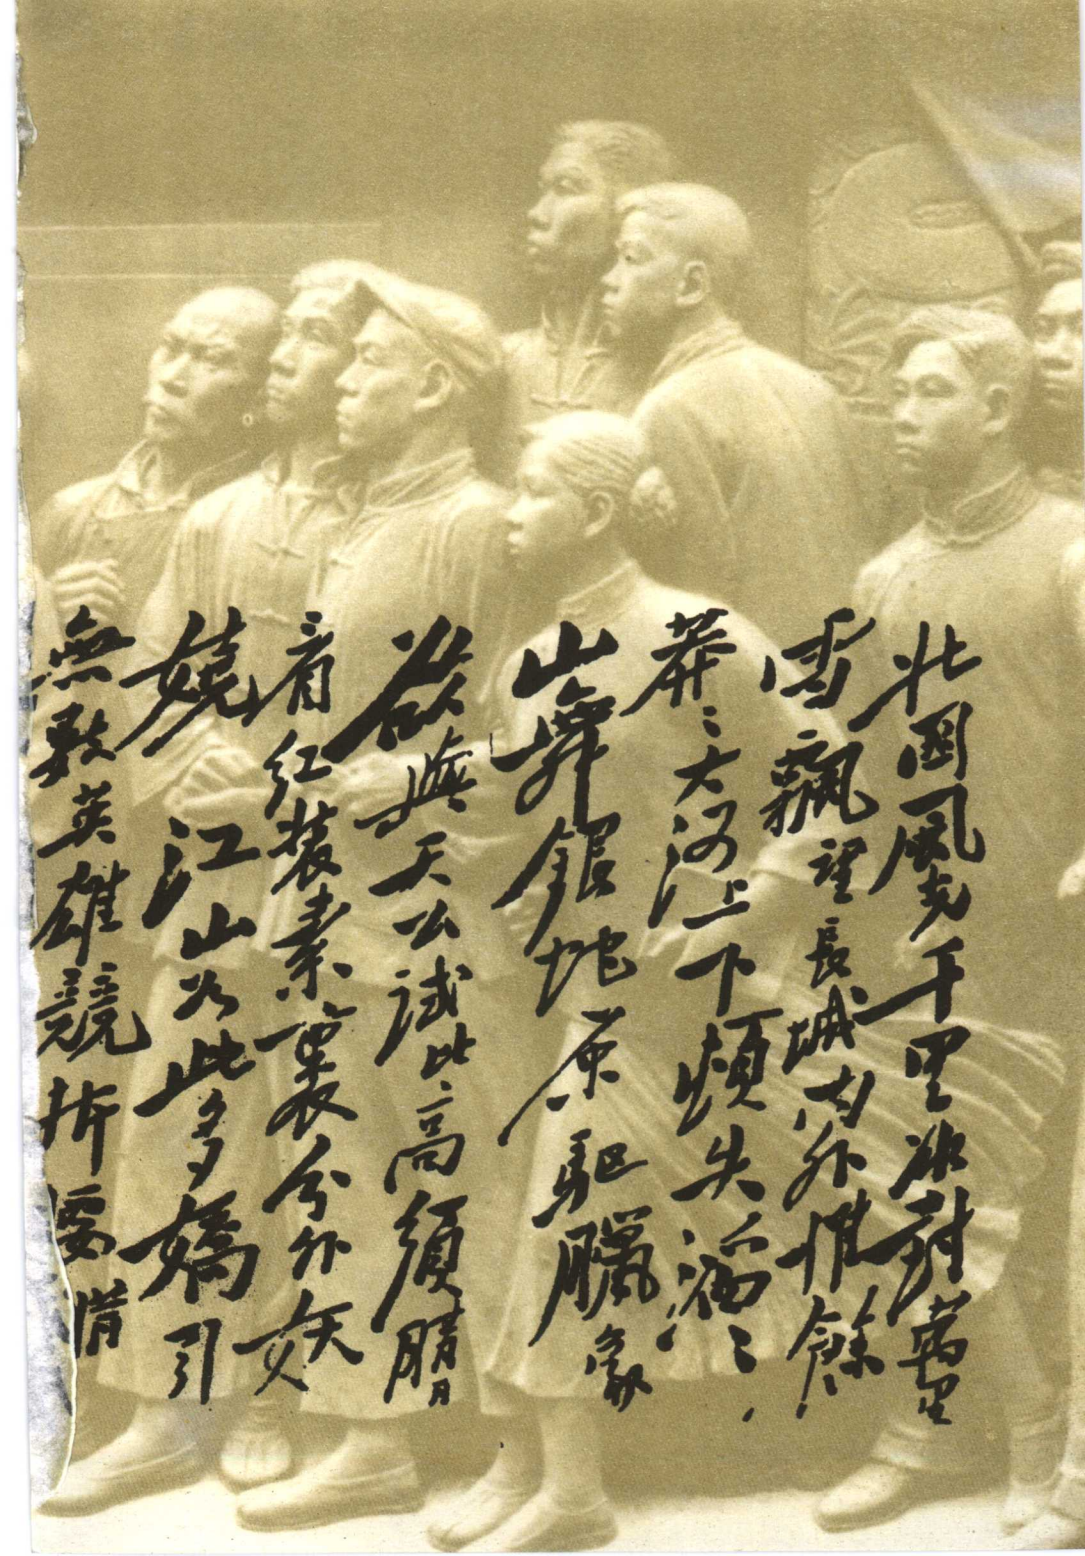 北國風光千里冰封萬里
雪飄望長城内外惟餘
莽〻大河上下頓失滔〻
山舞銀蛇原驅臘象
欲與天公試比高須晴日
看紅裝素裹分外妖
嬈江山如此多嬌引
無數英雄競折腰惜